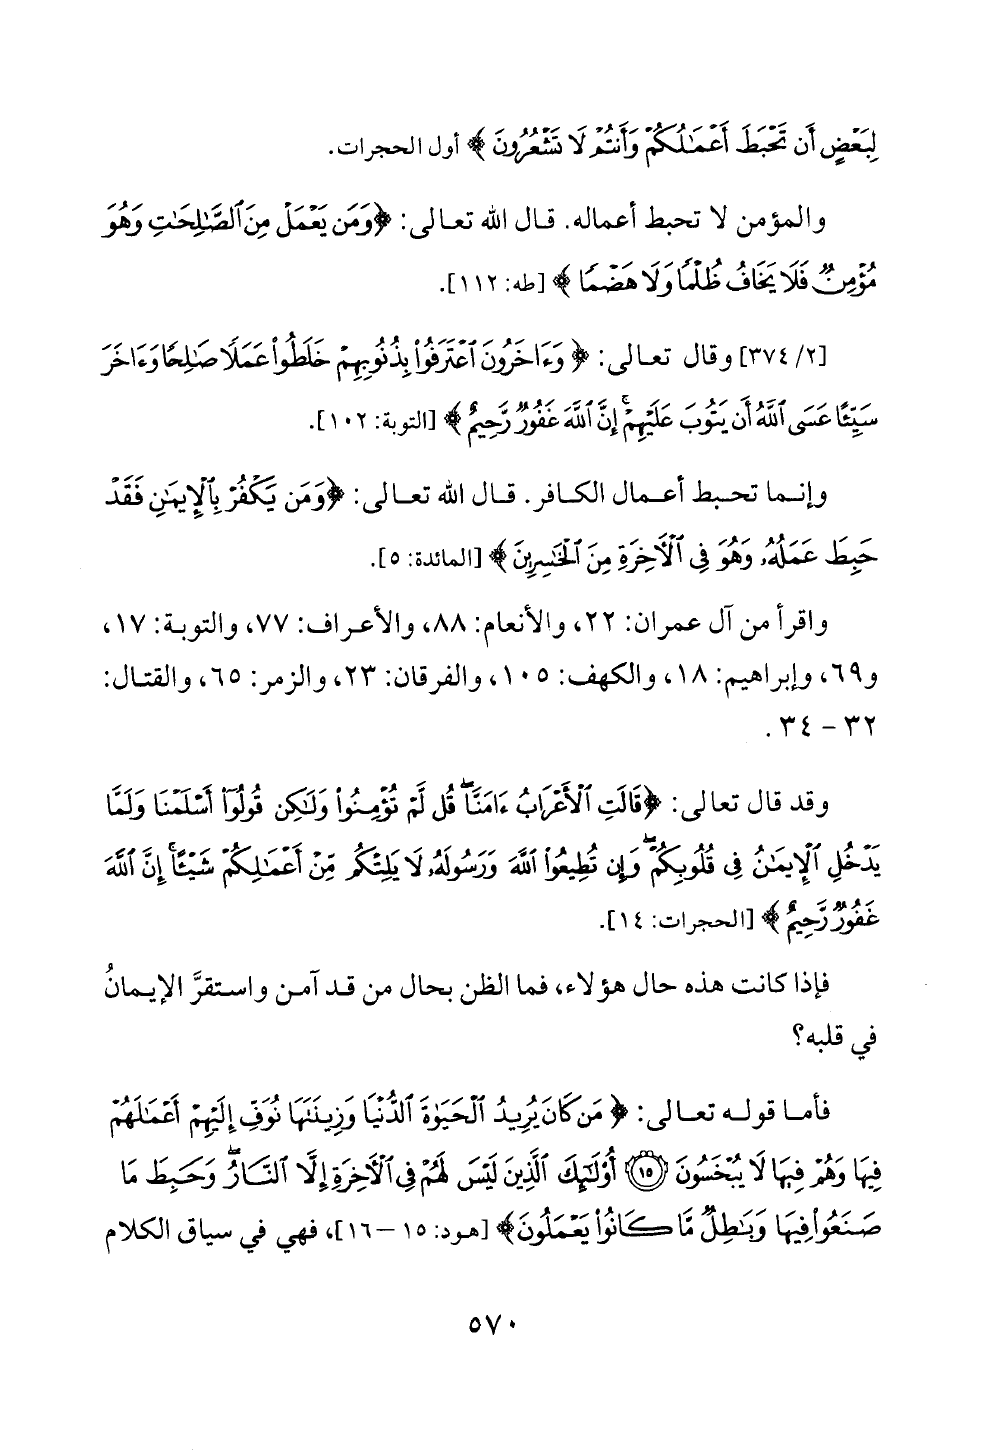 لِبَعْضٍ أَن تَحْبَطَ أَعْمَٰلُكُمْ وَأَنتُمْ لَا تَشْعُرُونَ ﴾ أول الحجرات.
والمؤمن لا تحبط أعماله. قال الله تعالى: ﴿وَمَن يَعْمَلْ مِنَ ٱلصَّٰلِحَٰتِ وَهُوَ
مُؤْمِنٌ فَلَا يَخَافُ ظُلْمًا وَلَا هَضْمًا ﴾ [طه: ١١٢].
[٢/ ٣٧٤] وقال تعالى: ﴿ وَءَاخَرُونَ ٱعْتَرَفُوا۟ بِذُنُوبِهِمْ خَلَطُوا۟ عَمَلًا صَٰلِحًا وَءَاخَرَ
سَيِّئًا عَسَى ٱللَّهُ أَن يَتُوبَ عَلَيْهِمْ ۚ إِنَّ ٱللَّهَ غَفُورٌ رَّحِيمٌ ﴾ [التوبة: ١٠٢].
وإنما تحبط أعمال الكافر. قال الله تعالى: ﴿وَمَن يَكْفُرْ بِٱلْإِيمَٰنِ فَقَدْ
حَبِطَ عَمَلُهُۥ وَهُوَ فِى ٱلْأَخِرَةِ مِنَ ٱلْخَٰسِرِينَ ﴾ [المائدة: ٥].
واقرأ من آل عمران: ٢٢، والأنعام: ٨٨، والأعراف: ٧٧، والتوبة: ١٧،
و٦٩، وإبراهيم: ١٨، والكهف: ١٠٥، والفرقان: ٢٣، والزمر: ٦٥، والقتال:
٣٢ – ٣٤ .
وقد قال تعالى: ﴿قَالَتِ ٱلْأَعْرَابُ ءَامَنَّا ۖ قُل لَّمْ تُؤْمِنُوا۟ وَلَٰكِن قُولُوٓا۟ أَسْلَمْنَا وَلَمَّا
يَدْخُلِ ٱلْإِيمَٰنُ فِى قُلُوبِكُمْ ۖ وَإِن تُطِيعُوا۟ ٱللَّهَ وَرَسُولَهُۥ لَا يَلِتْكُم مِّنْ أَعْمَٰلِكُمْ شَيْـًٔا ۚ إِنَّ ٱللَّهَ
غَفُورٌ رَّحِيمٌ ﴾ [الحجرات: ١٤].
فإذا كانت هذه حال هؤلاء، فما الظن بحال من قد آمن واستقرَّ الإيمانُ
في قلبه؟
فأما قوله تعالى: ﴿ مَن كَانَ يُرِيدُ ٱلْحَيَوٰةَ ٱلدُّنْيَا وَزِينَتَهَا نُوَفِّ إِلَيْهِمْ أَعْمَٰلَهُمْ
فِيهَا وَهُمْ فِيهَا لَا يُبْخَسُونَ ﴿١٥﴾ أُو۟لَٰٓئِكَ ٱلَّذِينَ لَيْسَ لَهُمْ فِى ٱلْأَخِرَةِ إِلَّا ٱلنَّارُ ۖ وَحَبِطَ مَا
صَنَعُوا۟ فِيهَا وَبَٰطِلٌ مَّا كَانُوا۟ يَعْمَلُونَ﴾ [هود: ١٥ –١٦]، فهي في سياق الكلام
٥٧٠